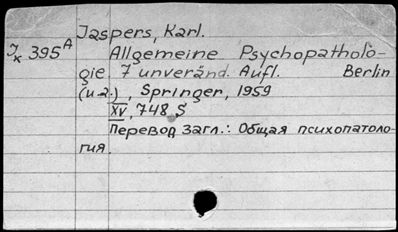 Jaspers, Karl.
Ix 395A Allgemeine Psychopatholo-
gie. 7 unveränd. Aufl. Berlin
(u.a.), Springer, 1959
XV, 748 S
Перевод загл.: Общая психопатоло-
гия.